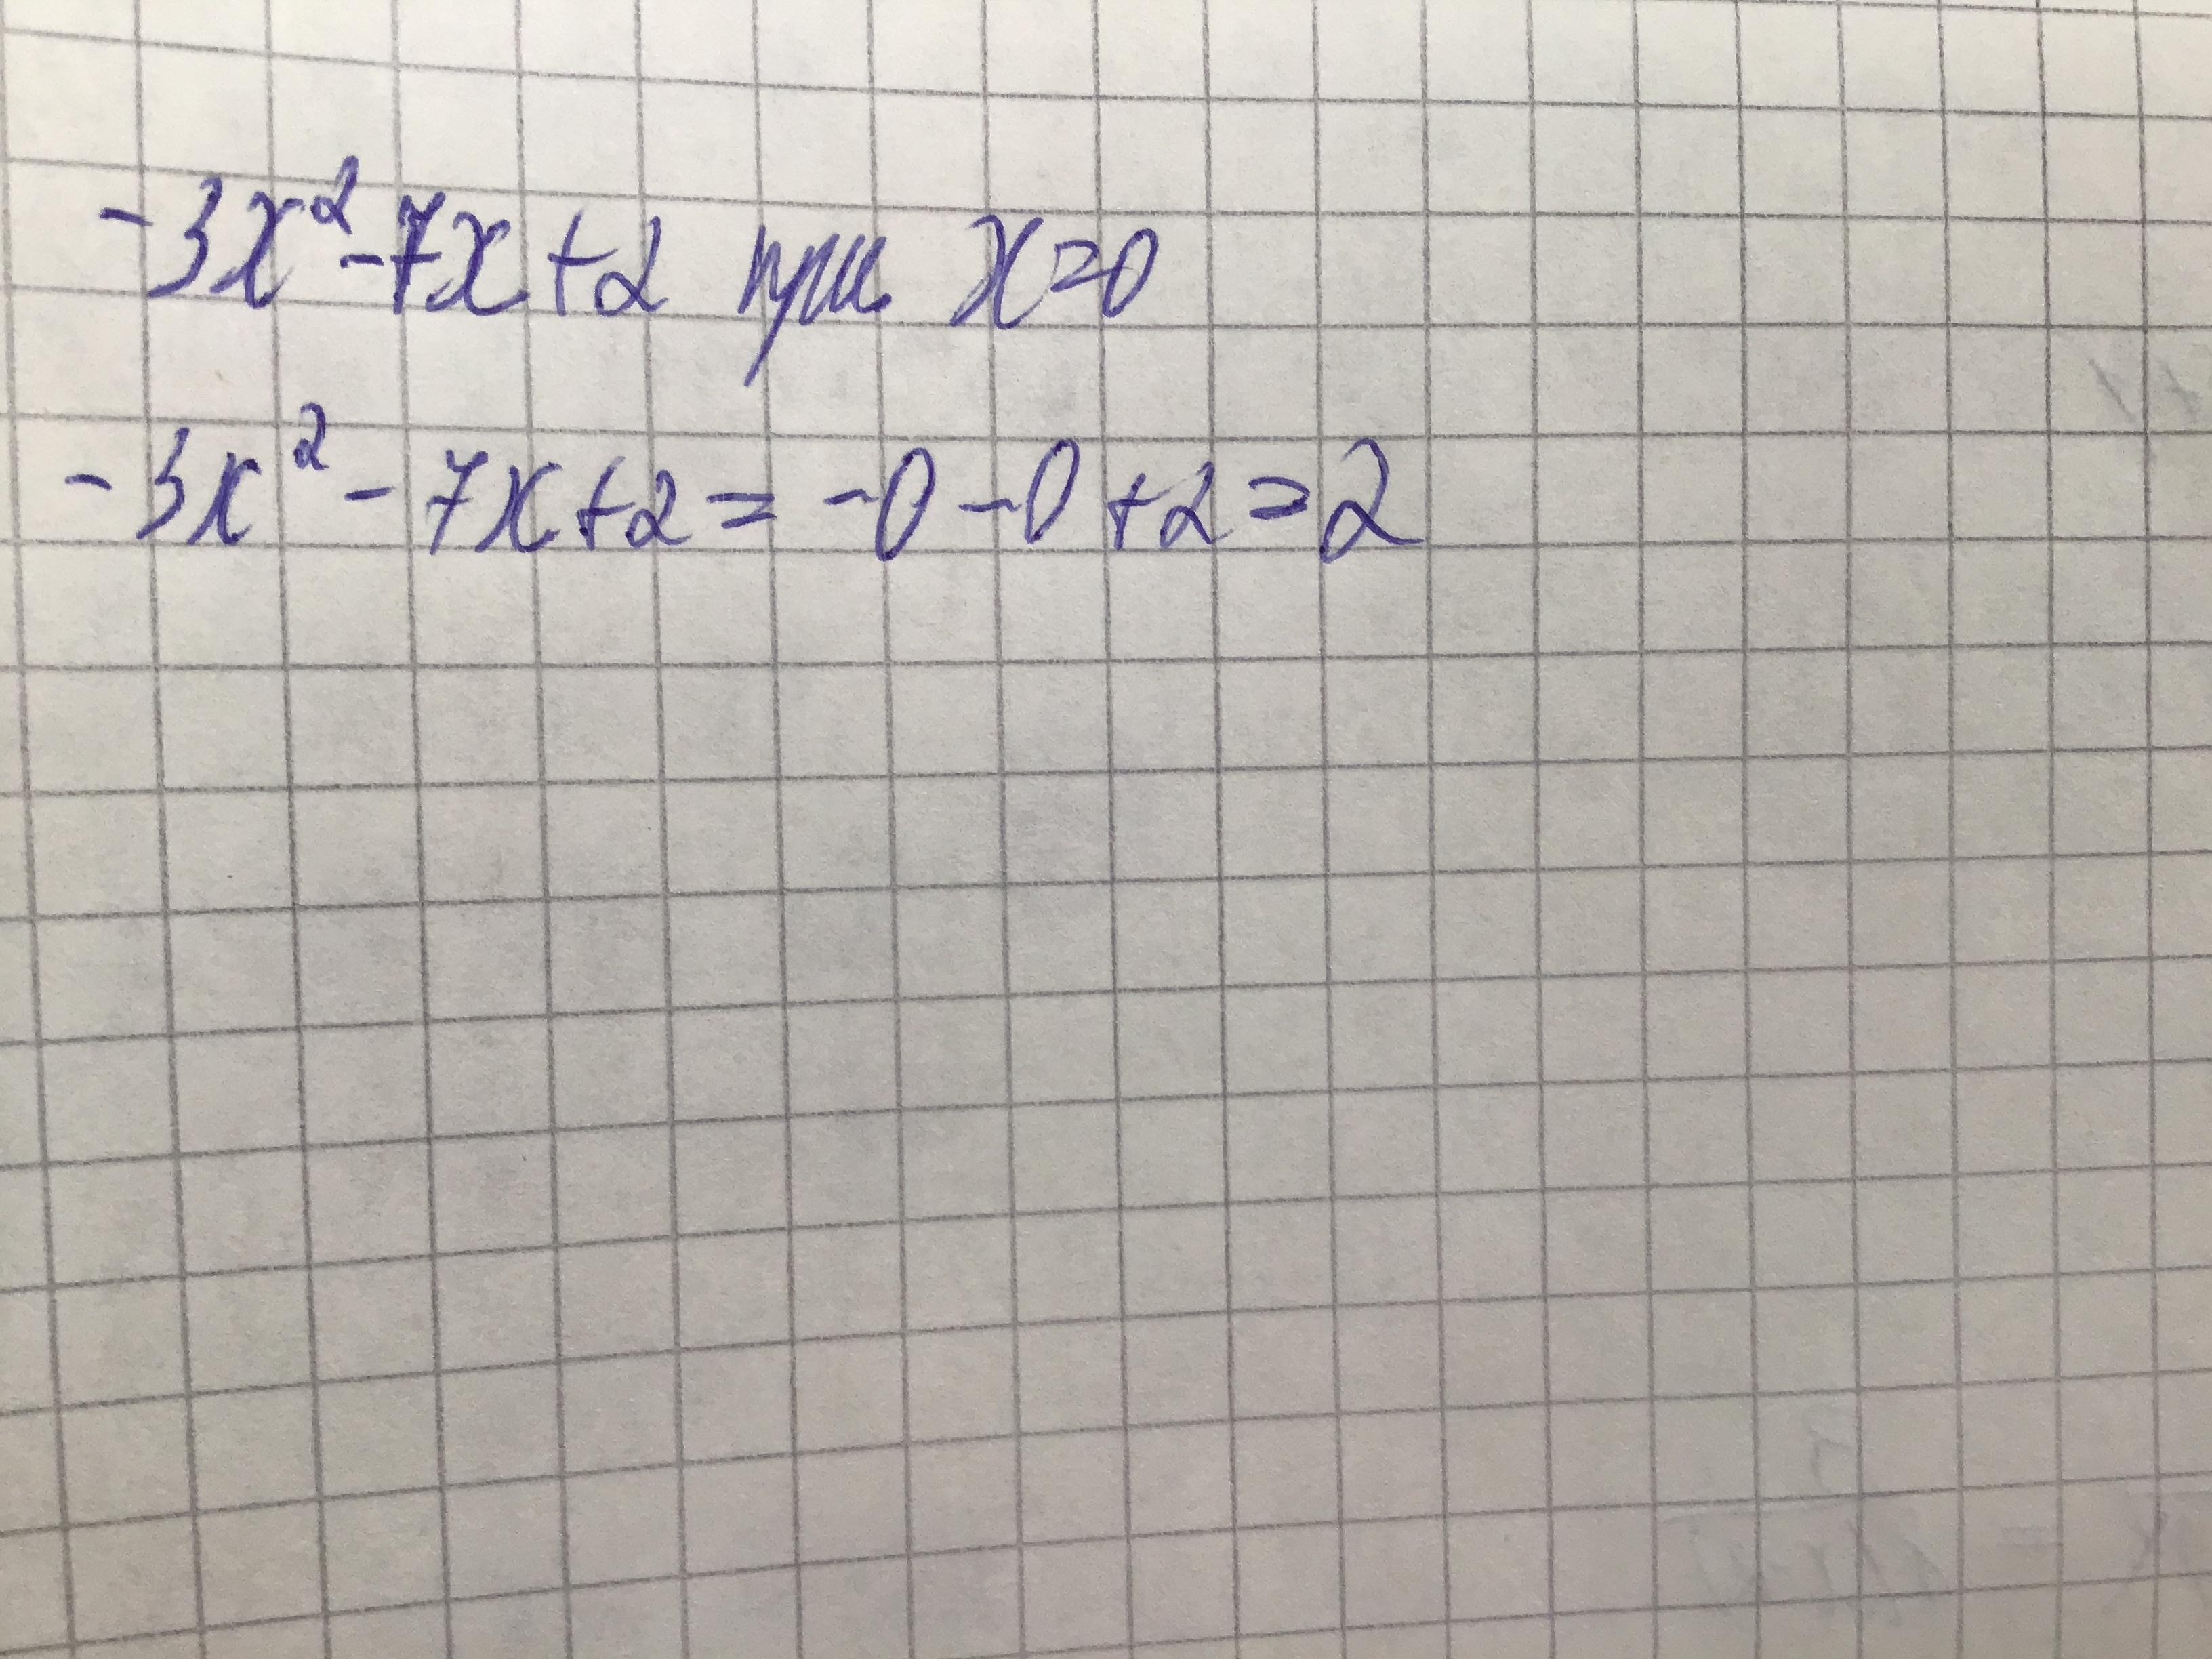 -3x²-7x+2 при x=0
-3x²-7x+2=-0-0+2=2